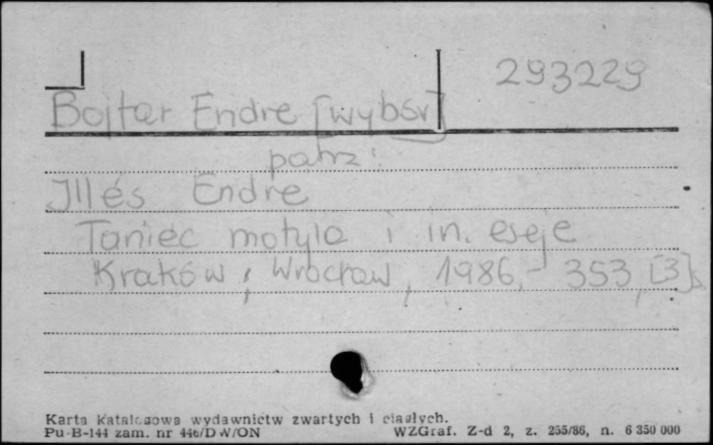 293229
Bojtar Endre [wybór]
patrz:
Illés Endre
Taniec motyla i in. eseje
Kraków, Wrocław, 1986.- 353,[3]s
Karta katalogowa wydawnictw zwartych i ciągłych.
Pu-B-144 zam. nr 446/DW/ON WZGraf. Z-d 2, z. 255/86, n. 6 350 000